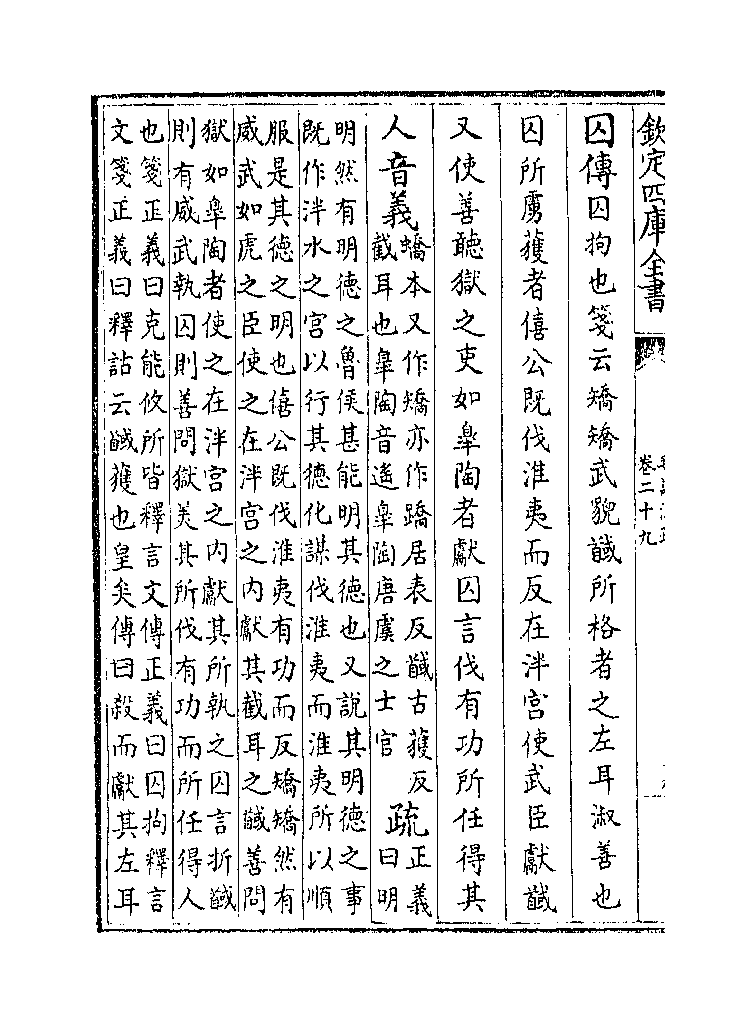 欽定四庫全書
卷二十九
囚傳囚拘也箋云矯矯武貌馘所格者之左耳淑善也
囚所虜獲者僖公既伐淮夷而反在泮宮使武臣獻馘
又使善聽獄之吏如臯陶者獻囚言伐有功所任得其
人音義蟜本又作矯亦作蹻居表反馘古獲反
截耳也臯陶音遙臯陶唐虞之士官
疏正義
曰明
明然有明德之魯侯甚能明其德也又說其明德之事
既作泮水之宮以行其德化謀伐淮夷而淮夷所以順
服是其德之明也僖公既伐淮夷有功而反矯矯然有
威武如虎之臣使之在泮宮之內獻其截耳之馘善問
獄如臯陶者使之在泮宮之內獻其所執之囚言折馘
則有威武執囚則善問獄美其所伐有功而所任得人
也箋正義曰克能攸所皆釋言文傳正義曰囚拘釋言
文箋正義曰釋詁云馘獲也皇矣傳曰殺而獻其左耳